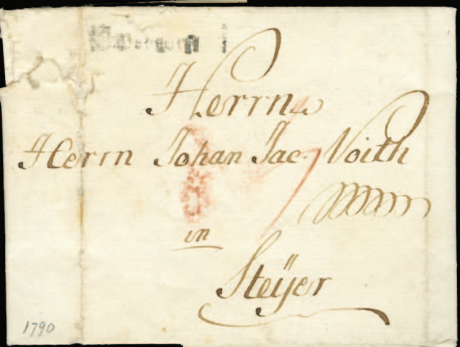 Herrn
Herrn Johan Jac. Voith
in
Steÿer
1790